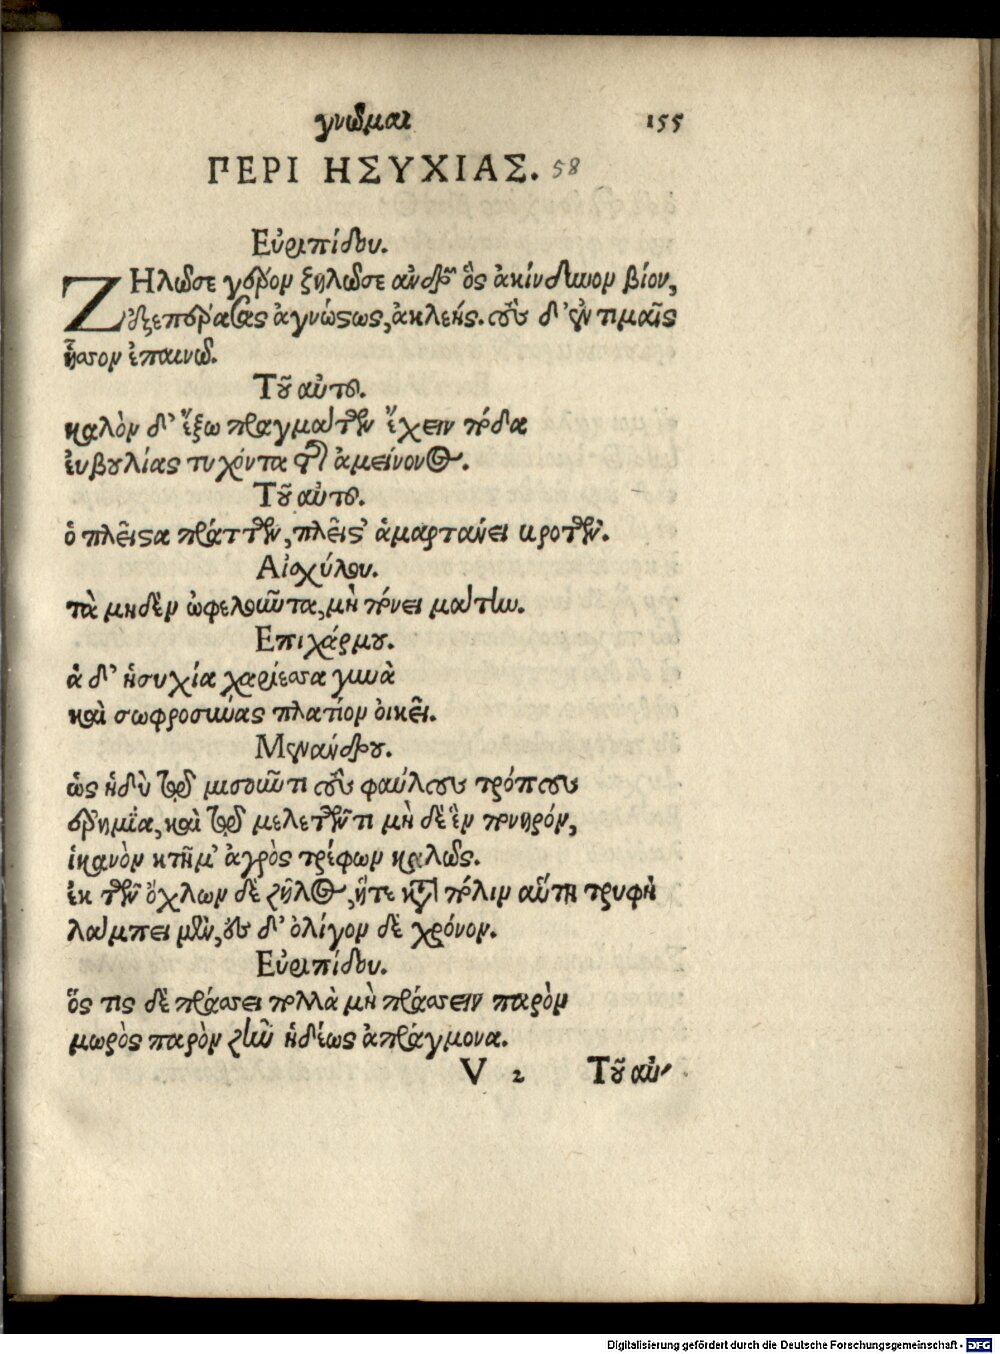 γνῶμαι 155
ΠΕΡΙ ΗΣΥΧΙΑΣ. 58
Εὐριπίδου.
ΖΗλῶσε γέρον ζηλῶσε ἀνδρῶν ὃς ἀκίνδυνον βίον,
ἐξεπέρασας ἀγνώςως, ἀκλεής. τοὺς δ' ἐν τιμαῖς
ἧσσον ἐπαινῶ.
Τοῦ αὐτοῦ.
καλὸν δ' ἔξω πραγμάτων ἔχειν πόδα
ἐυβουλίας τυχόντα τοῦ ἀμείνονος.
Τοῦ αὐτοῦ.
ὁ πλεῖςα πράττων, πλεῖς' ἁμαρτάνει κροτῶν.
Αἰσχύλου.
τὰ μηδὲν ὠφελοῦντα, μὴ πόνει μάτην.
Επιχάρμου.
ἁ δ' ἡσυχία χαρίεσσα γυνὰ
καὶ σωφροσύνας πλατίον ὀικεῖ.
Μενάνδρου.
ὡς ἡδὺ τῷ μισοῦντι τοὺς φαύλους τρόπους
ἐρημία, καὶ τῷ μελετῶντι μὴ δὲ ἓν πονηρόν,
ἱκανὸν κτῆμ' ἀγρὸς τρέφων καλῶς.
ἐκ τῶν ὄχλων δὲ ζῆλος, ἥτε κατὰ πόλιν αὕτη τρυφὴ
λάμπει μὲν, ἐς δ' ὀλίγον δὲ χρόνον.
Εὐριπίδου.
ὅς τις δὲ πράσσει πολλὰ μὴ πράσσειν παρὸν
μωρὸς παρὸν ζῆν ἡδέως ἀπράγμονα.
V 2 Τοῦ αὐ-
Digitalisierung gefördert durch die Deutsche Forschungsgemeinschaft - DFG